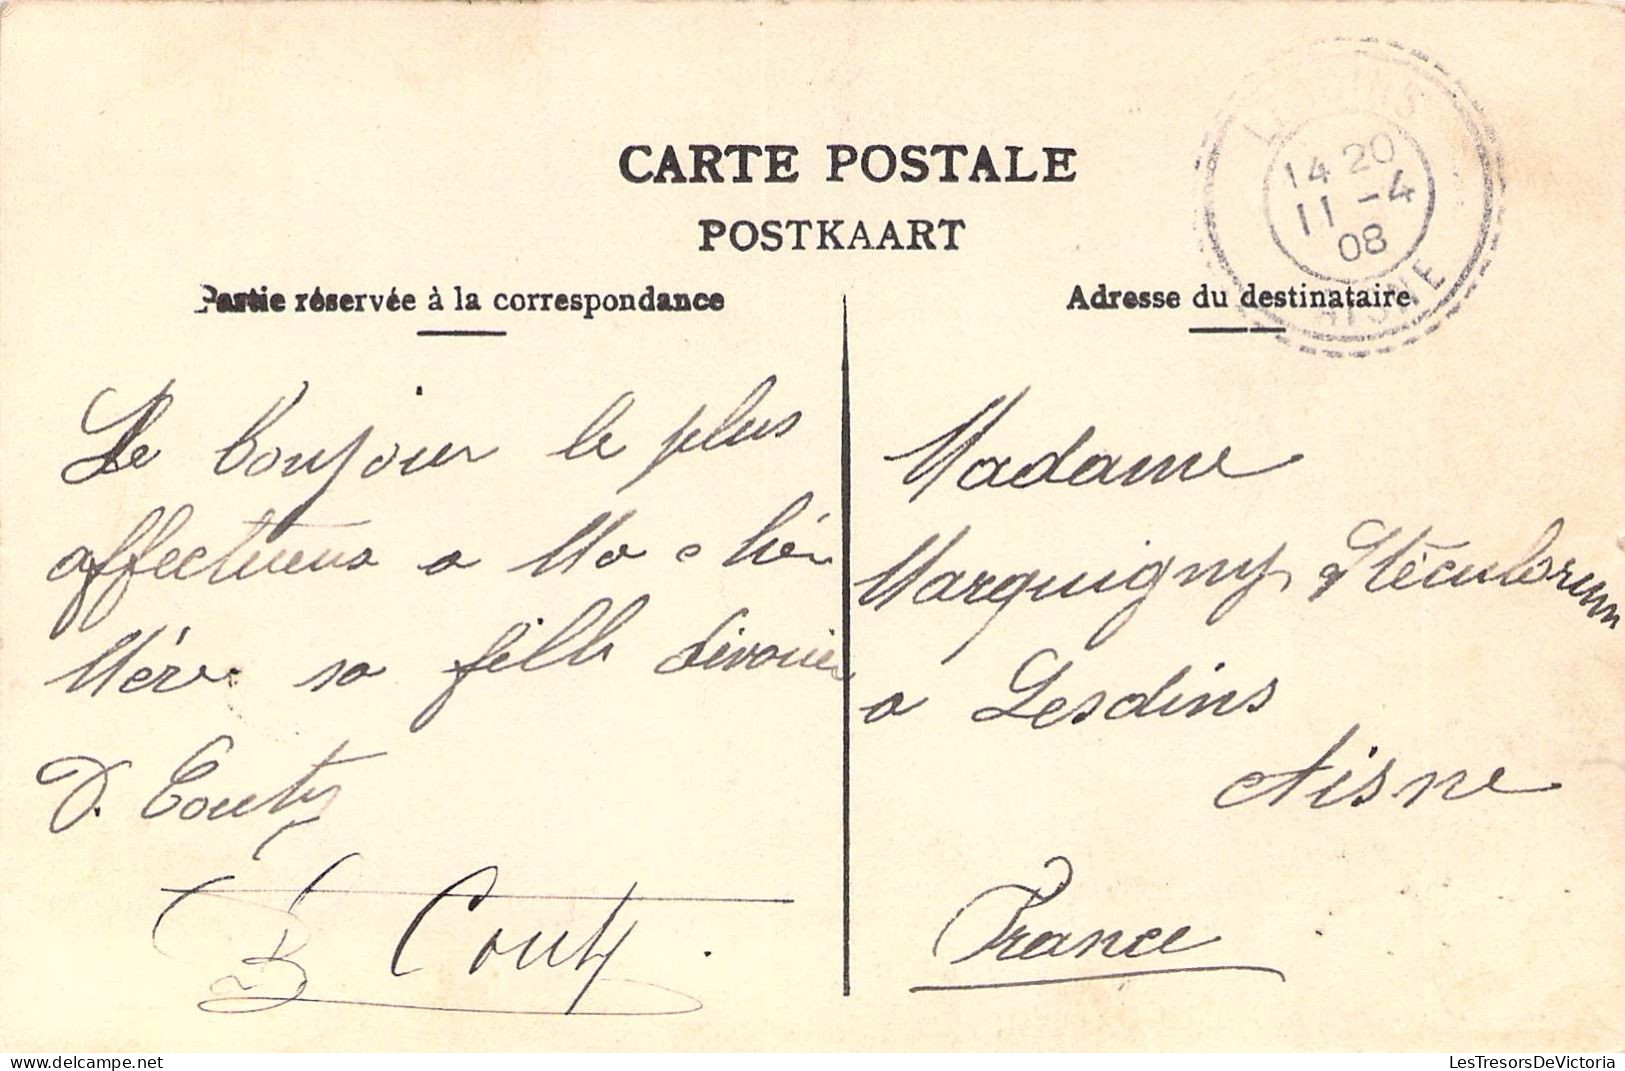 CARTE POSTALE
POSTKAART
Partie réservée à la correspondance
Adresse du destinataire
14 20
11 -4
08
AISNE
Le bonjour le plus
affectueux a Ma chèr
Mère sa fille
D. Couty
B Couty.
Madame
Marquigny
a Lesdins
Aisne
France
LesTresorsDeVictoria